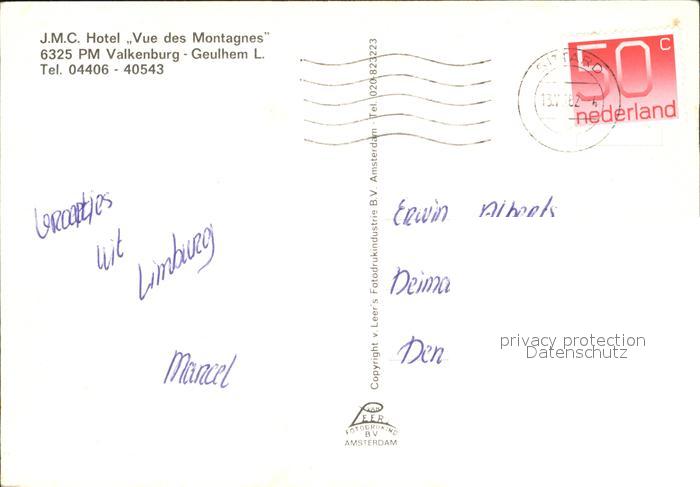 J.M.C. Hotel „Vue des Montagnes"
6325 PM Valkenburg - Geulhem L.
Tel. 04406 - 40543
SITTARD
50 C
nederland
Groetjes
uit
Limburg
Marcel
Erwin Alberts
Deima
Den
Copyright v. Leer's Fotodrukindustrie B.V. Amsterdam - Tel. 020-823223
VAN
LEER
FOTODRUKIND
BV
AMSTERDAM
privacy protection
Datenschutz